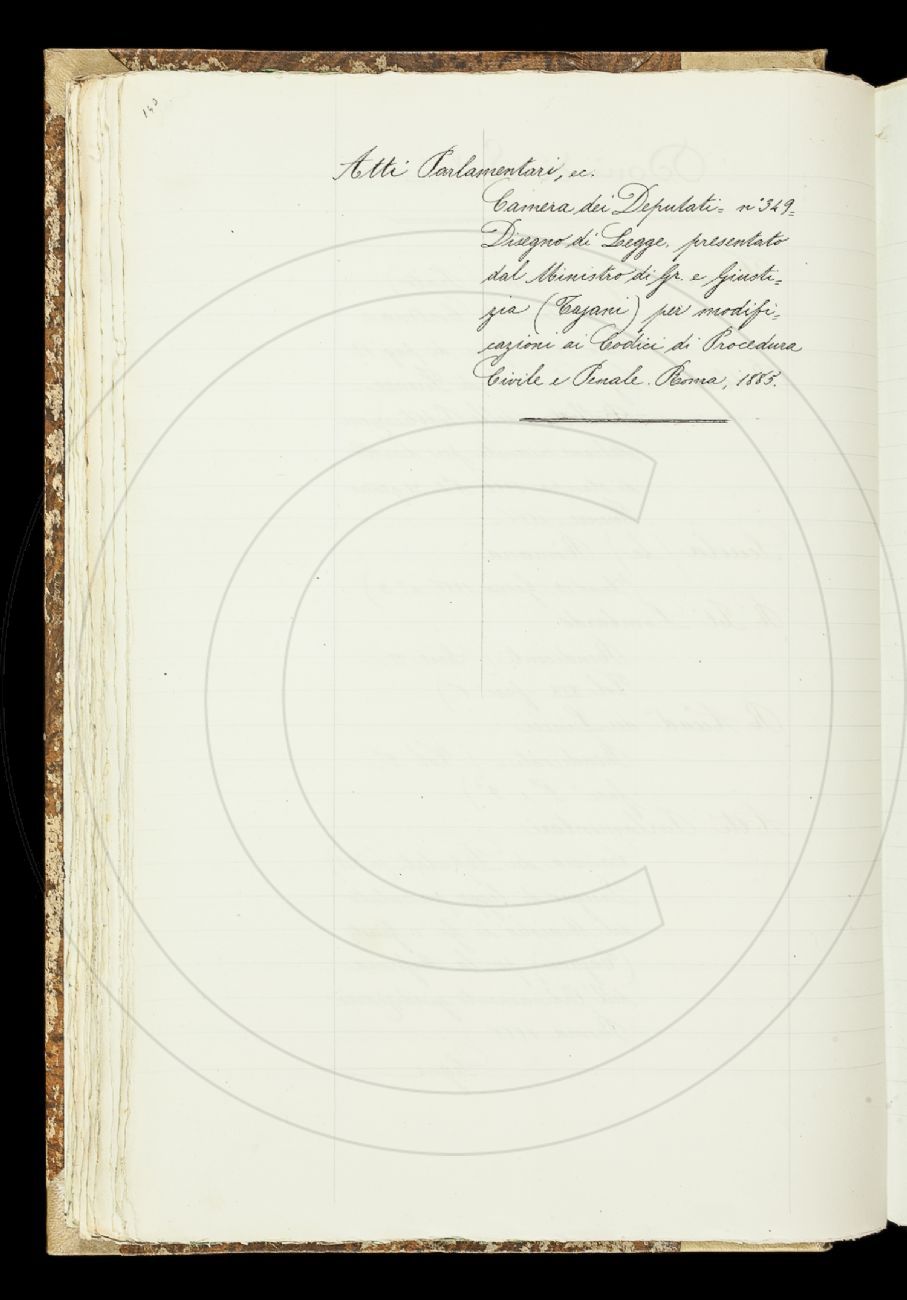 143
Atti Parlamentari, ec.
Camera dei Deputati= n° 349=
Disegno di Legge, presentato
dal Ministro di Gr. e Giusti=
zia (Tajani) per modifi=
cazioni ai Codici di Procedura
Civile e Penale. Roma, 1885.